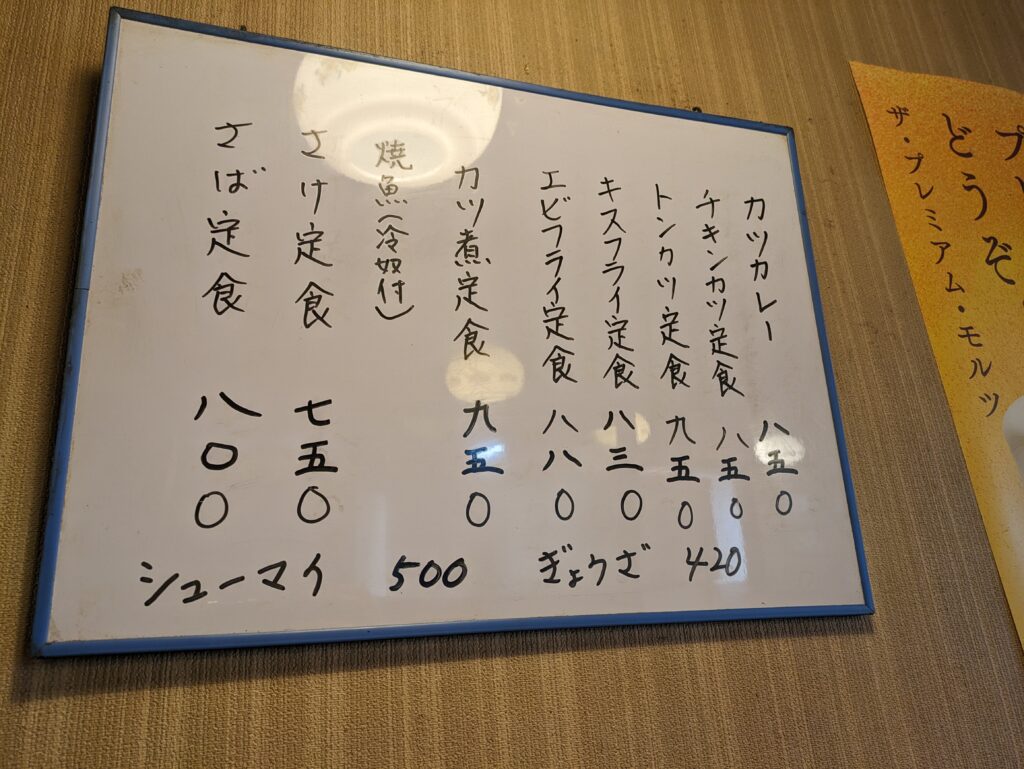 カツカレー 八五〇
チキンカツ定食 八五〇
トンカツ定食 九五〇
キスフライ定食 八三〇
エビフライ定食 八八〇
カツ煮定食 九五〇
焼魚(冷奴付)
さけ定食 七五〇
さば定食 八〇〇
シューマイ 500 ぎょうざ 420
どうぞ
ザ・プレミアム・モルツ